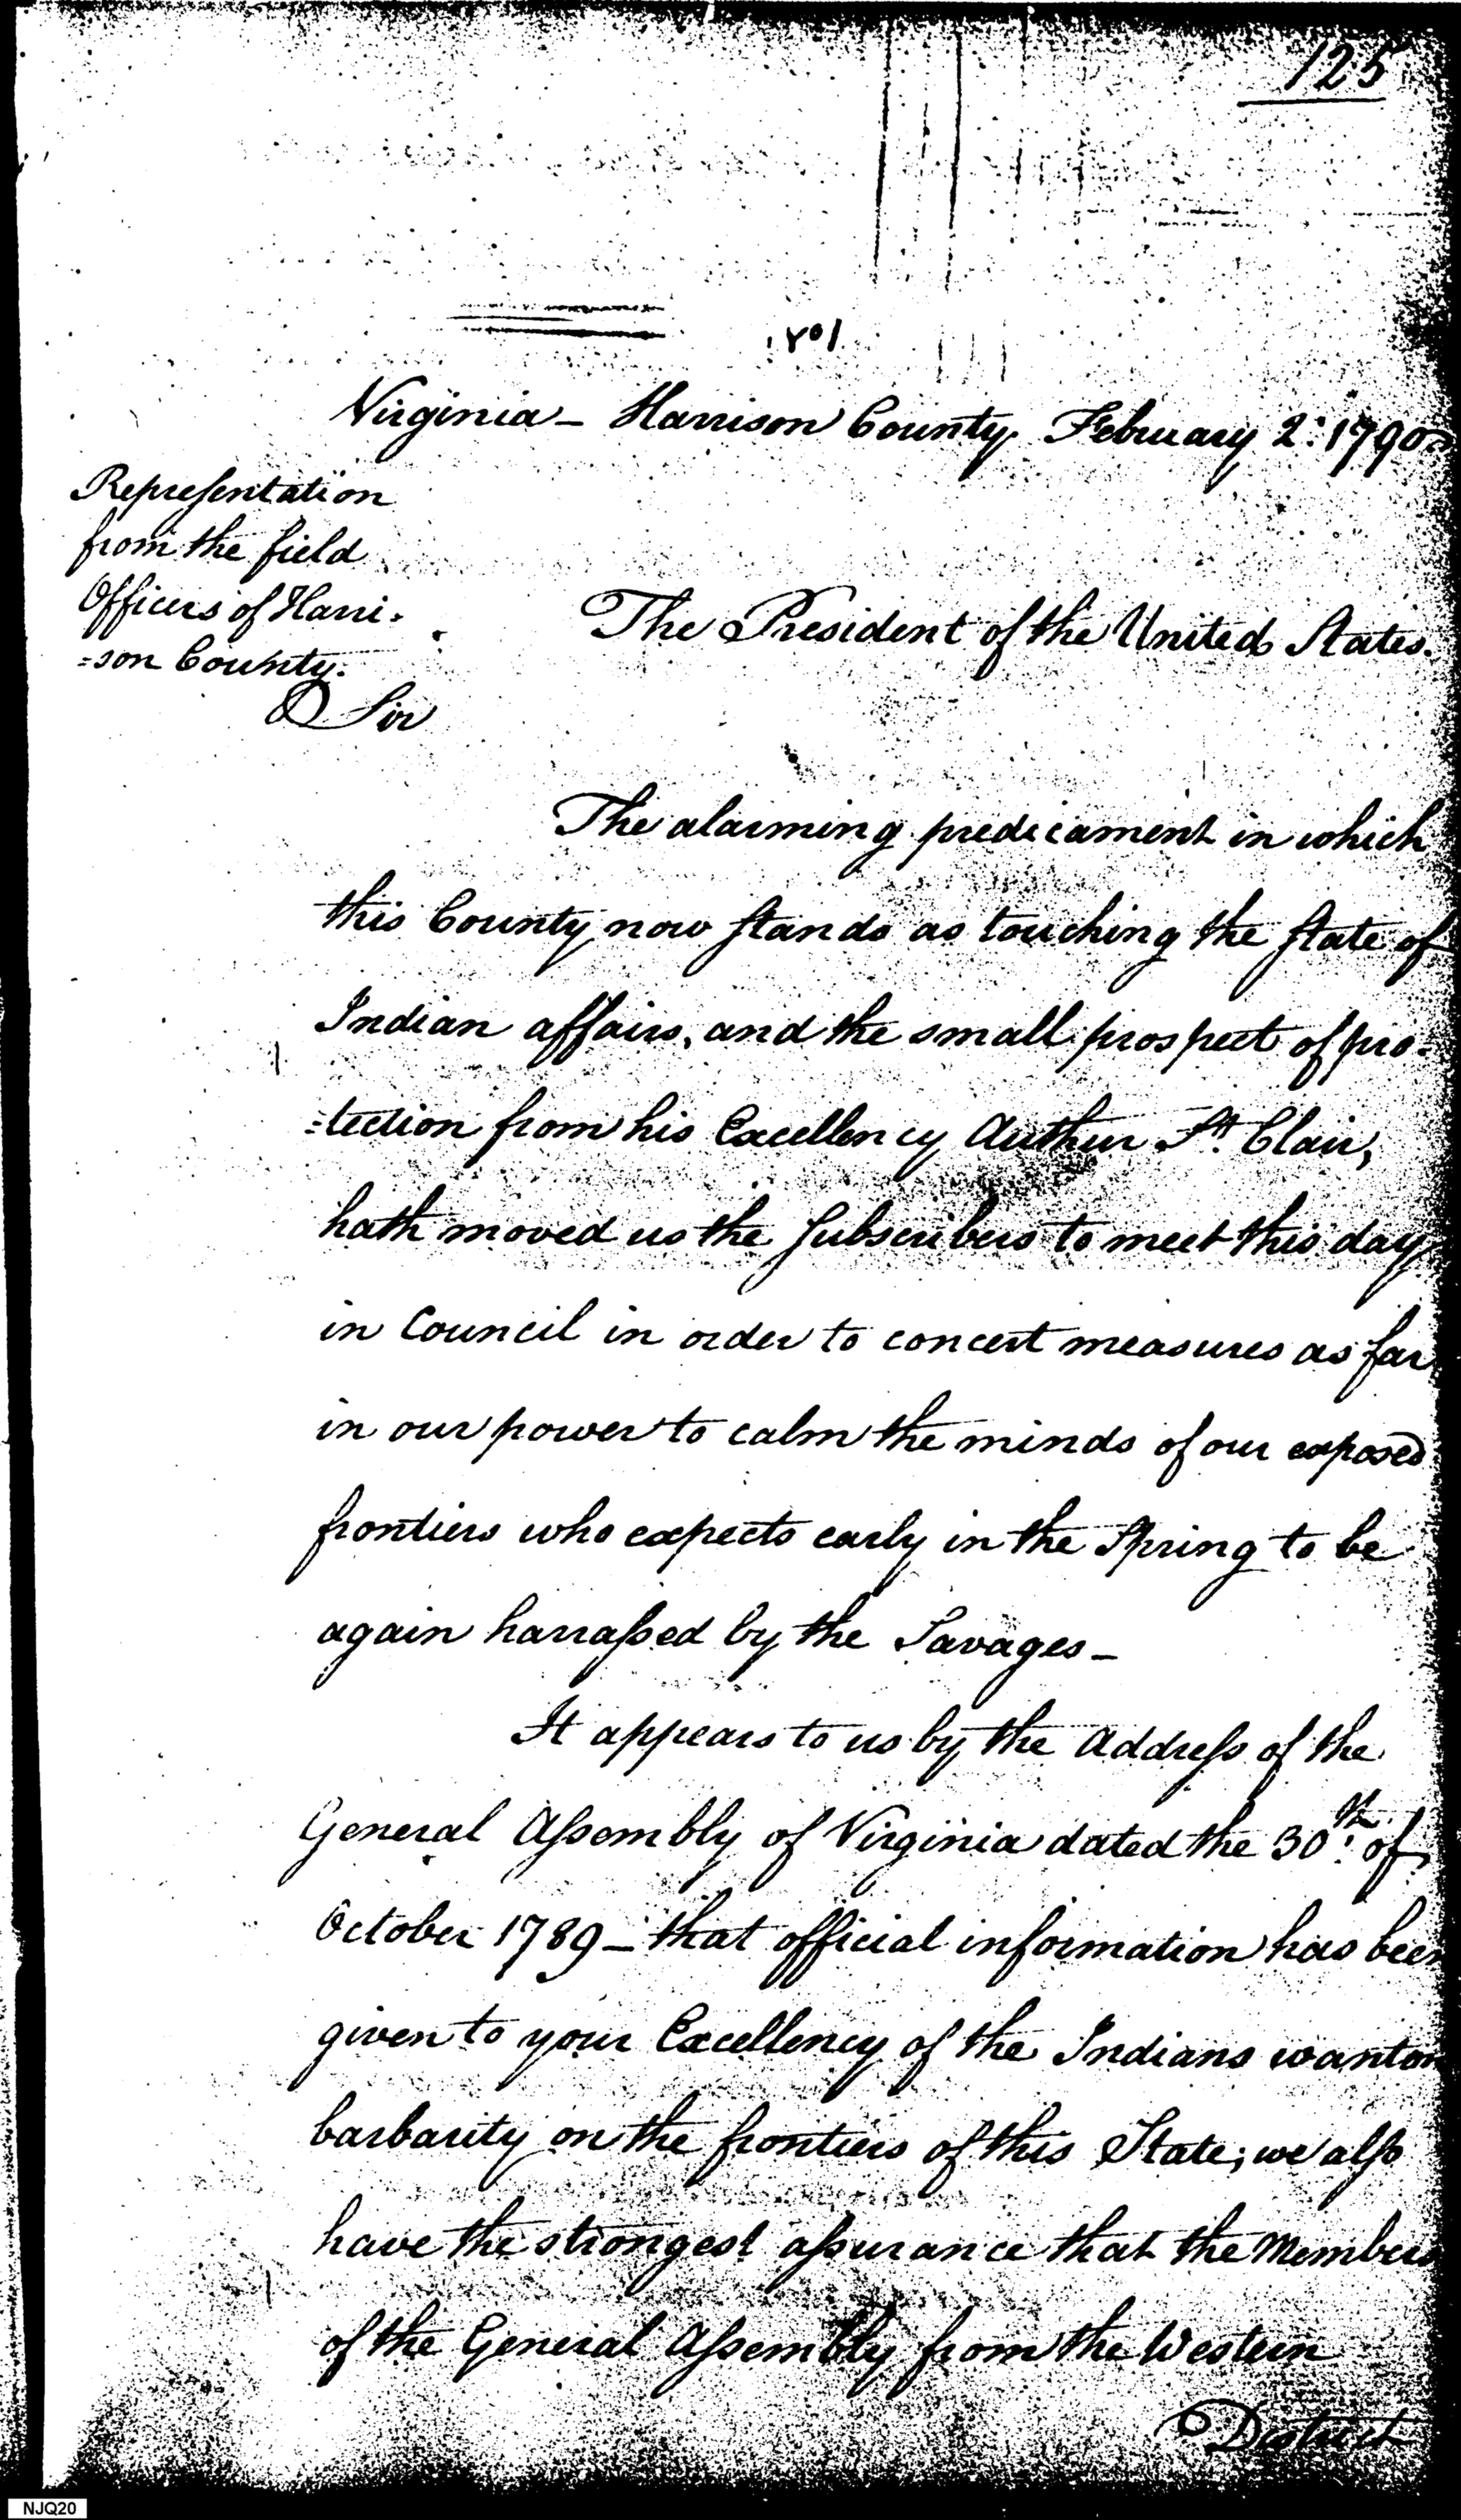 125
Virginia – Harrison County. February 2: 1790.
Representation
from the field
Officers of Harri-
=son County.
The President of the United States.
Sir
The alarming predicament in which
this County now stands as touching the state of
Indian affairs, and the small prospect of pro-
=tection from his Excellency Arthur St. Clair,
hath moved us the subscribers to meet this day
in Council in order to concert measures as far
in our power to calm the minds of our exposed
frontiers who expects early in the Spring to be
again harrassed by the Savages –
It appears to us by the Address of the
General Assembly of Virginia dated the 30th: of
October 1789 – that official information has been
given to your Excellency of the Indians wanton
barbarity on the frontiers of this State; we also
have the strongest assurance that the Members
of the General Assembly from the Western
District
NJQ20